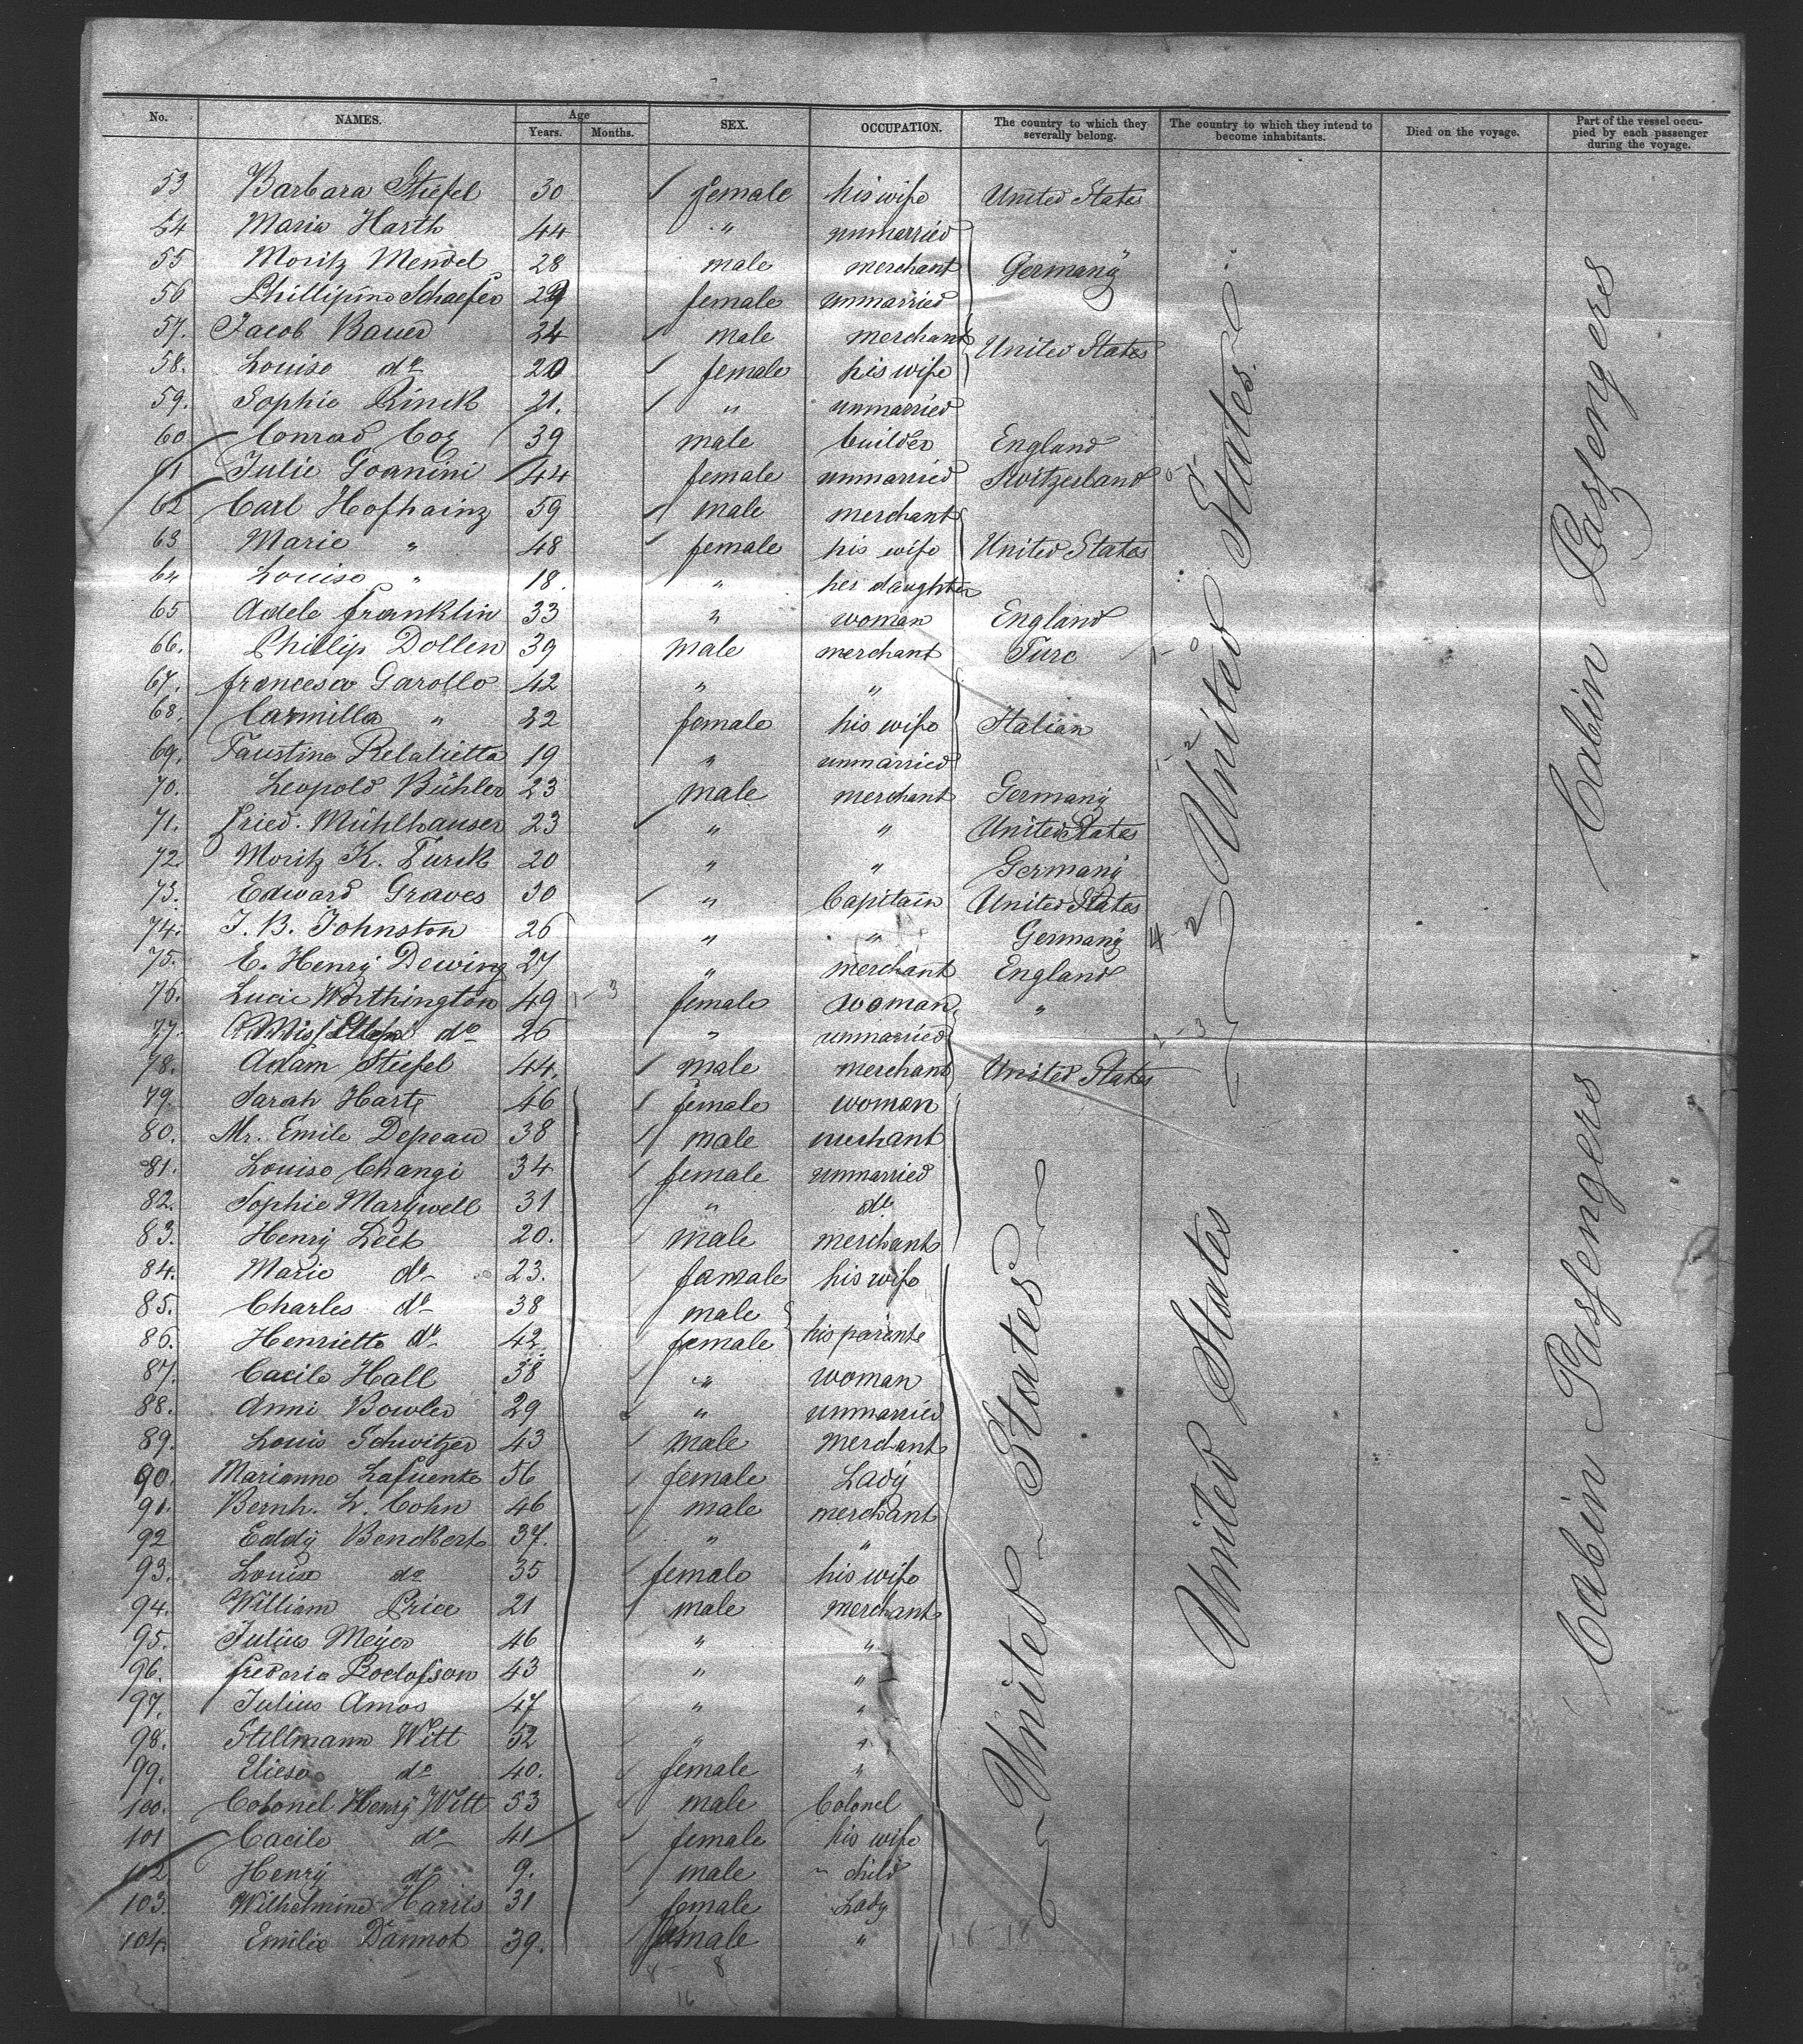 No. NAMES. Age Years. Months. SEX. OCCUPATION. The country to which they severally belong. The country to which they intend to become inhabitants. Died on the voyage. Part of the vessel occupied by each passenger during the voyage.
53 Barbara Stiefel 30 female his wife United States
54 Maria Harth 44 " unmarried
55 Moritz Mendel 28 male merchant Germany
56 Schaefer female unmarried
57. Jacob Bauer 24 male merchant United States
58. Louise do 20 female his wife
59. Sophie Rinck 21. " unmarried
60 Conrad Cox 39 male builder England
61 Julie Goanini 44 female unmarried Switzerland
62 Carl Hofhainz 59 male merchant
63 Marie " 48 female his wife United States
64 Louise " 18. " her daughter
65 Adele Franklin 33 " woman England
66. Phillip Dollen 39 male merchant Turc
67. Francesco Garollo 42 " "
68. Carmilla " 22 female his wife Italian
69. Faustine 19 " unmarried
70. Leopold Bühler 23 male merchant Germany
71. Fried. Mühlhauser 23 " " United States
72. Moritz K. Türck 20 " " Germany
73. Edward Graves 30 " Capitain United States
74. J. B. Johnston 26 " " Germany
75. E. Henry Dewing 27 " merchant England
76. Lucie Worthington 49 female woman "
77. Miss do 26 " unmarried
78. Adam Stiefel 44. male merchant United States
79. Sarah 46 female woman
80. Mr. Emile Depeau 38 male merchant
81. Louise Changi 34 female unmarried
82. Sophie 31 " do
83. Henry 20. male merchant
84. Marie do 23. female his wife
85. Charles do 38 male his parents
86. Henriette do 42 female
87. Cacile Hall 38 " woman
88. Anni Bowler 29 " unmarried
89. Louis Schwitzer 43 male merchant
90. Marianne Lafuente 56 female Lady
91. Bernh. L. Cohn 46 male merchant
92 Eddy Benckert 37. " "
93. Louise do 35 female his wife
94. William Price 21 male merchant
95. Julius Meyer 46 " "
96. Frederic Roelofson 43 " "
97. Julius Amos 47 " "
98. Stillmann Witt 52 " "
99. Eliese do 40. female "
100. Colonel Henry Witt 53 male Colonel
101 Cacile do 41 female his wife
102. Henry do 9. male " child
103. Wilhelmine Harris 31 female Lady
104. Emilie Dannot 39. female "
United States
United States
United States
Cabin Passengers
Cabin Passengers
8 - 8
16
16 - 18